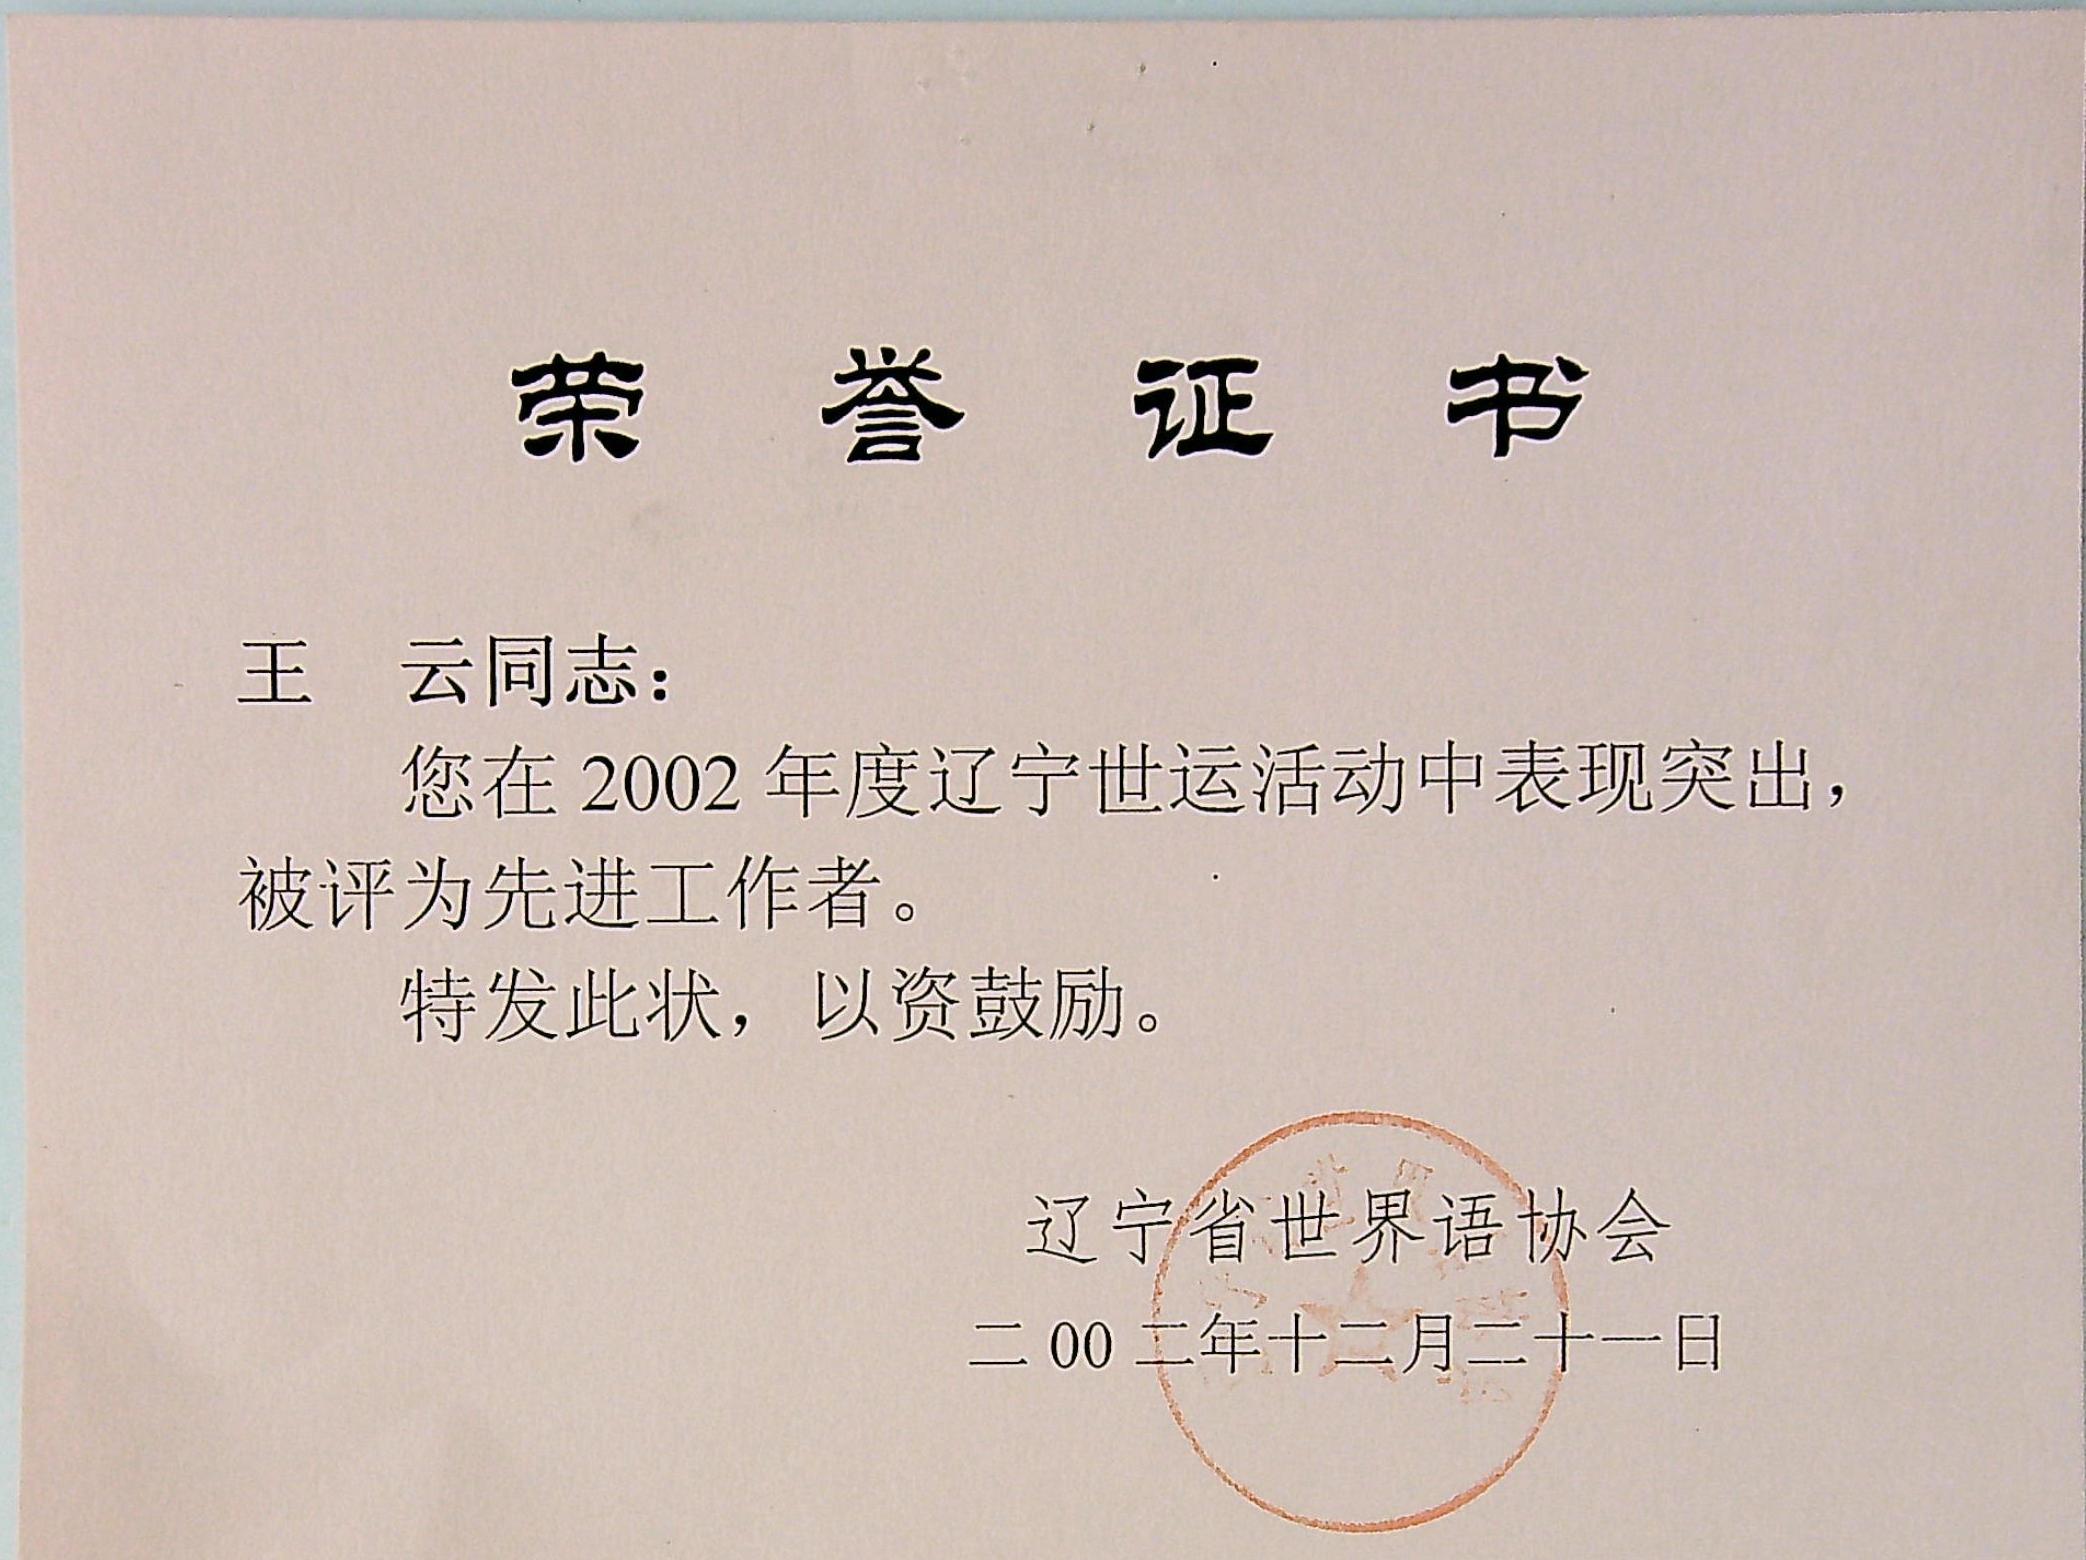 荣 誉 证 书
王 云同志：
您在 2002 年度辽宁世运活动中表现突出，
被评为先进工作者。
特发此状，以资鼓励。
辽宁省世界语协会
二 00 二年十二月二十一日